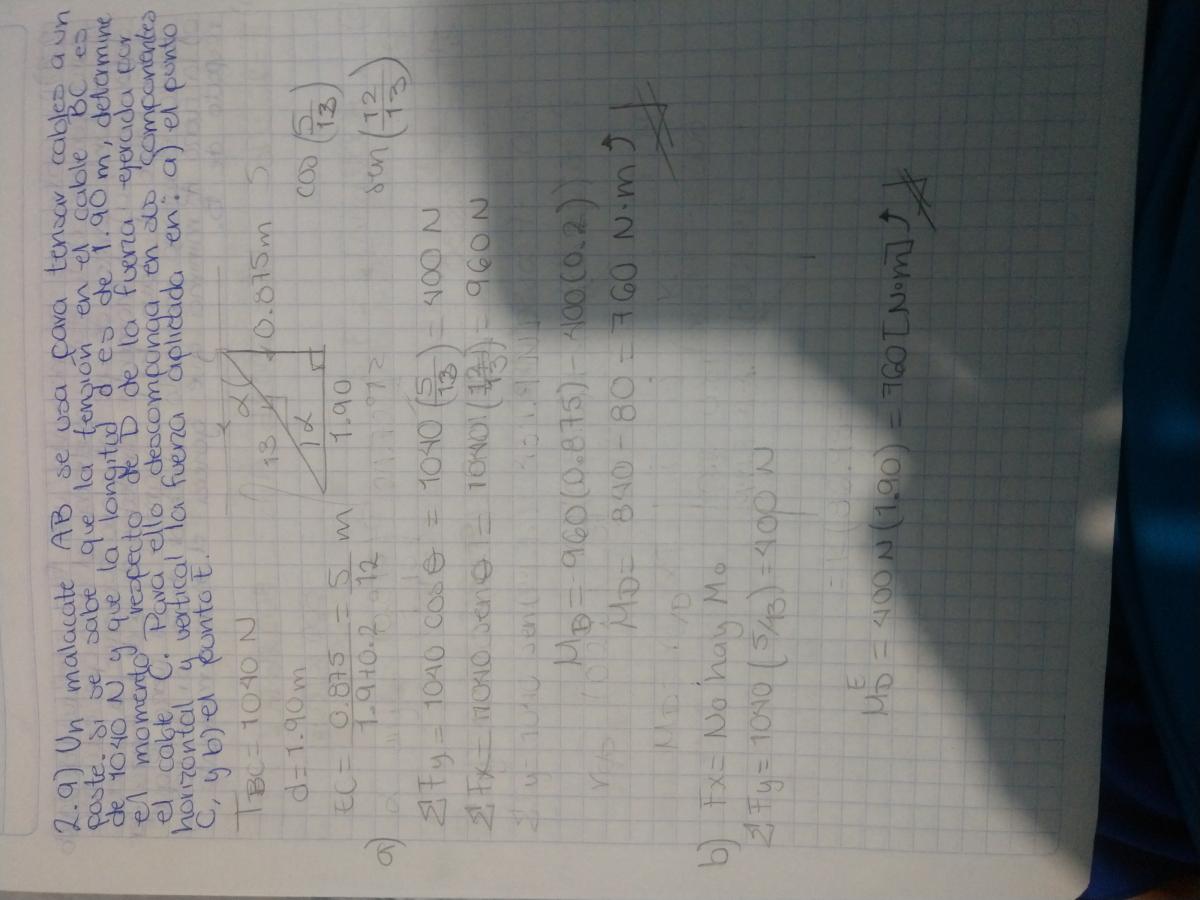 2.9) Un malacate AB se usa para tensar cables a un
poste. Si se sabe que la tensión en el cable BC es
de 1040 N y que la longitud d es de 1.90 m, determine
el momento respecto de D de la fuerza ejercida por
el cable C. Para ello descomponga en sus componentes
horizontal y vertical la fuerza aplicada en: a) el punto
C, y b) el punto E.
TBC = 1040 N
d = 1.90 m
13 α 0.875 m 5
α
1.90
cos (5/13)
EC = 0.875/1.9+0.2 = 5/12 m
sen (12/13)
a)
ΣFy = 1040 cos θ = 1040 (5/13) = 400 N
ΣFx = 1040 sen θ = 1040 (12/13) = 960 N
MD = 960(0.875) - 400(0.2)
MD = 840 - 80 = 760 N·m
b) Fx = No hay Mo
ΣFy = 1040 (5/13) = 400 N
MD^E = 400 N (1.90) = 760 [N·m]